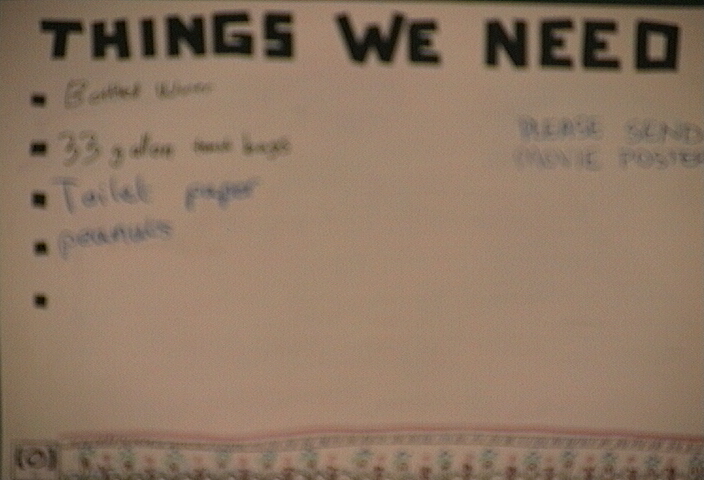 THINGS WE NEED
Bottled Water
33 gallon bags
Toilet paper
peanuts
PLEASE SEND
MOVIE POSTER